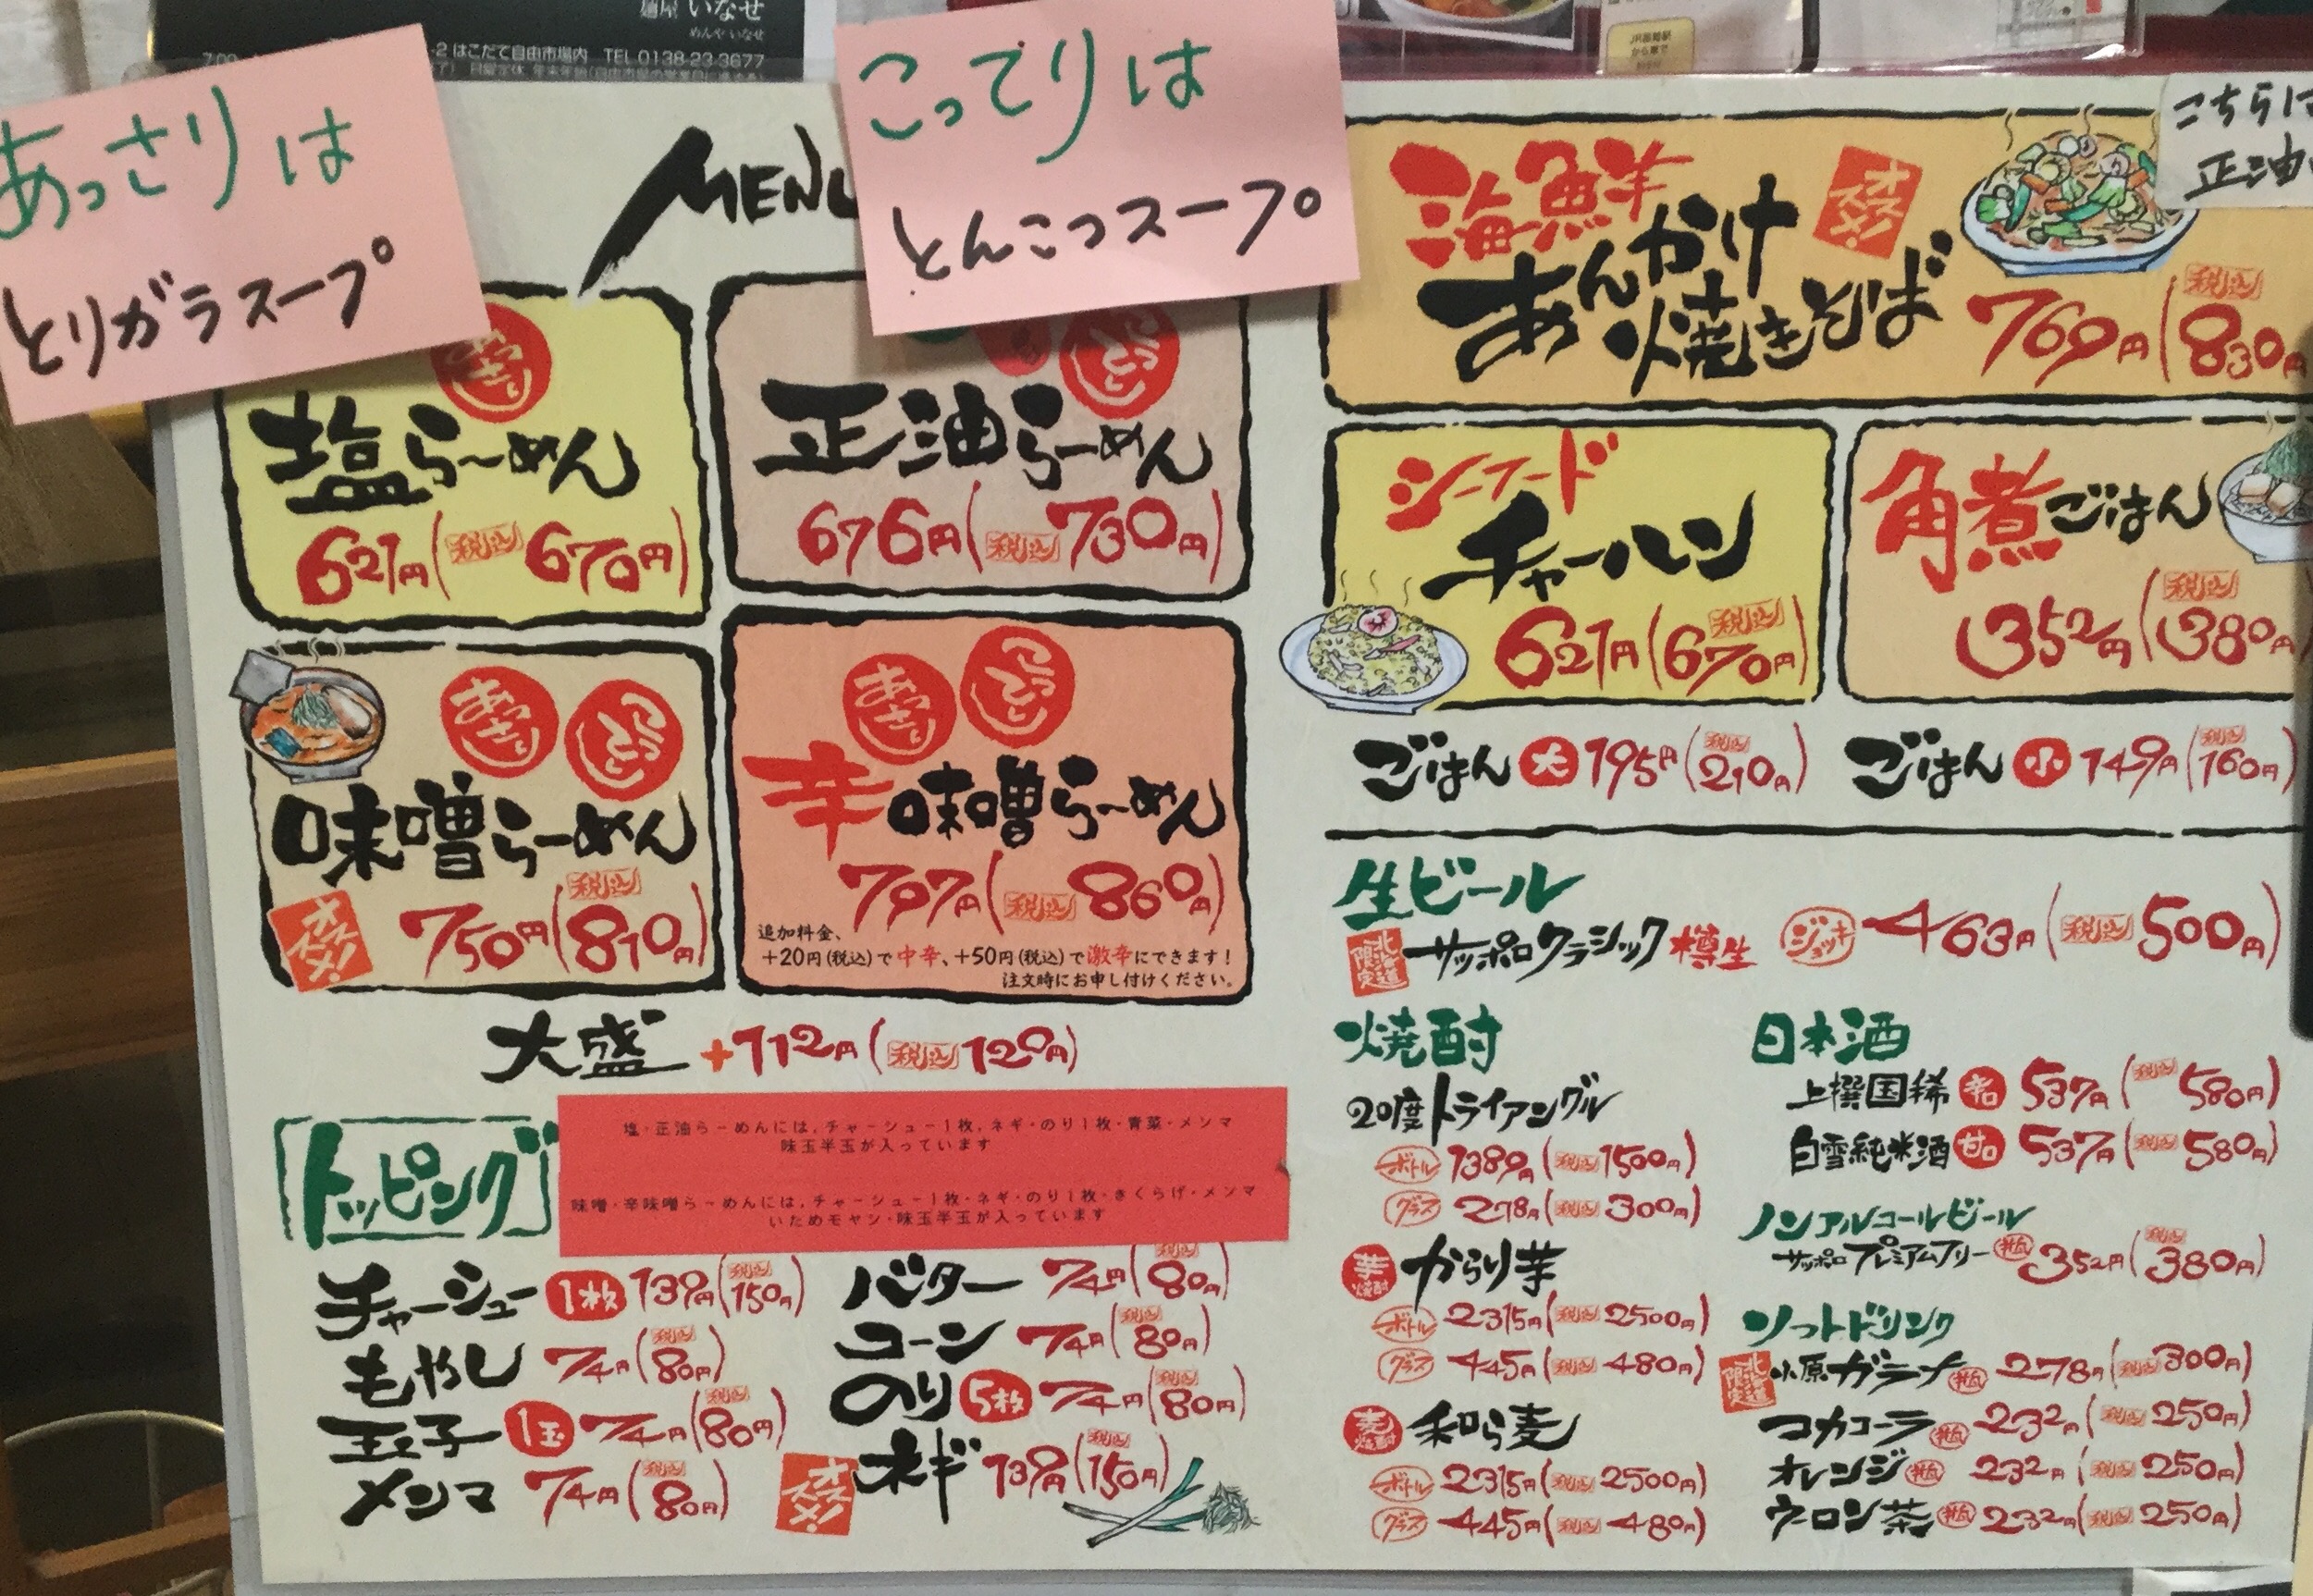 麺屋 いなせ
めんや いなせ
-2 はこだて自由市場内 TEL 0138-23-3677
あっさりは
とりガラスープ
こってりは
とんこつスープ
MENU
塩らーめん
621円(税込670円)
こってり
正油らーめん
676円(税込730円)
あっさり
こってり
味噌らーめん
オススメ!
750円(税込810円)
あっさり
こってり
辛味噌らーめん
797円(税込860円)
追加料金、
+20円(税込)で中辛、+50円(税込)で激辛にできます!
注文時にお申し付けください。
大盛 +112円(税込120円)
トッピング
塩・正油らーめんには,チャーシュー1枚,ネギ・のり1枚・青菜・メンマ
味玉半玉が入っています
味噌・辛味噌らーめんには,チャーシュー1枚・ネギ・のり1枚・きくらげ・メンマ
いためモヤシ・味玉半玉が入っています
チャーシュー 1枚 139円(税込150円)
もやし 74円(税込80円)
玉子 1玉 74円(税込80円)
メンマ 74円(税込80円)
バター 74円(税込80円)
コーン 74円(税込80円)
のり 5枚 74円(税込80円)
オススメ! ネギ 139円(税込150円)
こちらは
正油
海鮮
あんかけ
焼きそば
オススメ!
769円(税込830円
シーフード
チャーハン
621円(税込670円)
角煮ごはん
352円(税込380円
ごはん 大 195円(税込210円)
ごはん 小 149円(税込160円)
生ビール
北海道限定 サッポロクラシック樽生 ジョッキ 463円(税込500円)
焼酎
20度トライアングル
ボトル 1389円(税込1500円)
グラス 278円(税込300円)
芋焼酎 からり芋
ボトル 2315円(税込2500円)
グラス 445円(税込480円)
麦焼酎 和ら麦
ボトル 2315円(税込2500円)
グラス 445円(税込480円)
日本酒
上撰国稀 辛口 537円(税込580円)
白雪純米酒 甘口 537円(税込580円)
ノンアルコールビール
サッポロプレミアムフリー 瓶 352円(税込380円)
ソフトドリンク
北海道限定 小原ガラナ 瓶 278円(税込300円)
コカコーラ 瓶 232円(税込250円)
オレンジ 瓶 232円(税込250円)
ウーロン茶 瓶 232円(税込250円)